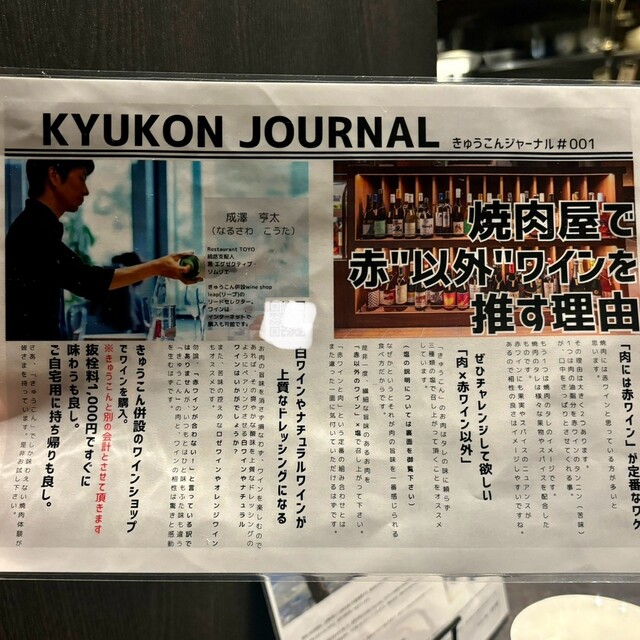 KYUKON JOURNAL
きゅうこんジャーナル#001
成澤 亨太
(なるさわ こうた)
Restaurant TOYO
統括支配人
兼 エグゼクティブ・
ソムリエ
きゅうこん併設wine shop
loop(リープ)の
リードセレクター。
ワインは
インターネットで
購入も可能です。
焼肉屋で
赤"以外"ワインを
推す理由
「肉には赤ワイン」が定番なワケ
肉には赤ワインと思っている方が多いと
思います。
その理由は大きく2つあります。
1つはお肉の油脂を赤ワインのタンニン(苦味)
ぜひチャレンジして欲しい
「肉×赤ワイン以外」
「きゅうこん」のお肉はタレの味に頼らず
三種類の塩で召し上がって頂くことをオススメ
しています。
(塩の説明については裏面を御覧下さい)
なぜかというと、それが肉の旨味を一番感じられる
食べ方だからです。
是非一度、繊細な旨味のあるお肉を
「赤以外のワイン」×塩で召し上がって下さい。
「赤ワインと肉」という定番の組み合わせとは
また違った一面に気付いていただけるはずです。
白ワインやナチュラルワインが
上質なドレッシングになる
お肉の旨味を消さず損なわず、ワインを楽しむので
ワインはいかがでしょうか?
また、ガス苦味の控えめなロゼワインやオレンジワイン
もオススメです。
勿論、「赤ワインが合わない！」と言っている訳で
はありませんが、いつもとひと味もふた味も違う
「きゅうこんの肉と、ワインの相性は驚きと感動
を生むはずです。
きゅうこん併設のワインショップ
でワインを購入。
※きゅうこんと別の会計とさせて頂きます
抜栓料1,000円ですぐに
味わうも良し。
ご自宅用に持ち帰りも良し。
さあ、「きゅうこん」でしか味わえない焼肉体験が
皆さまを待っています。是非お試し下さい。